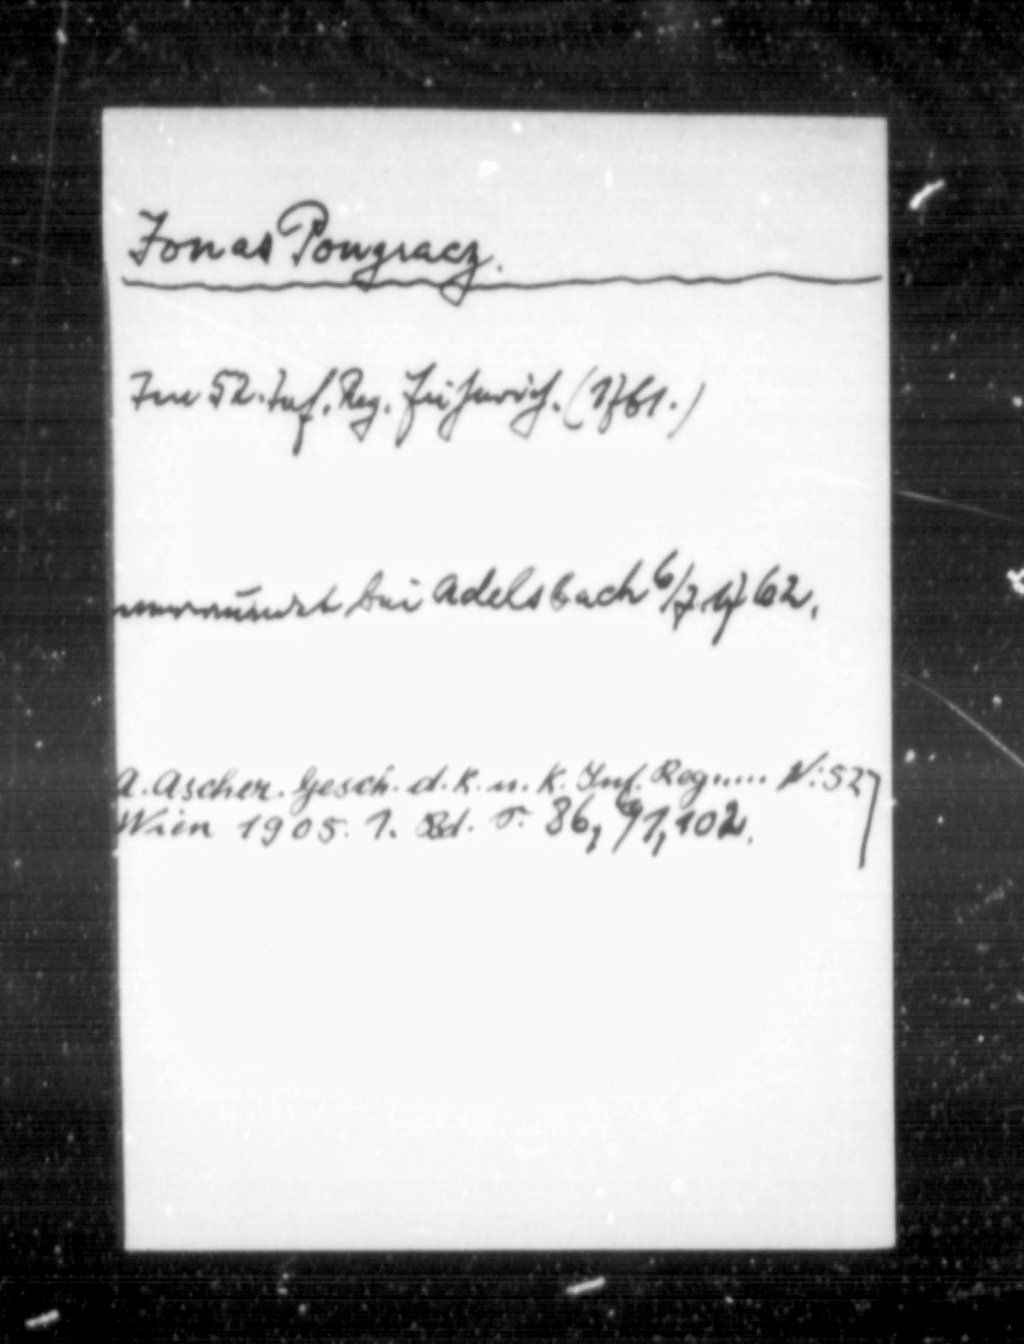 Jonas Pongracz.
Im 52. Inf. Reg. Fähnrich. (1761.)
verwundet bei Adelsbach 6/7 1762.
A. Ascher. Gesch. d. k. u. k. Inf. Reg..... N: 52
Wien 1905. 1. Bd. S. 86, 91, 102.